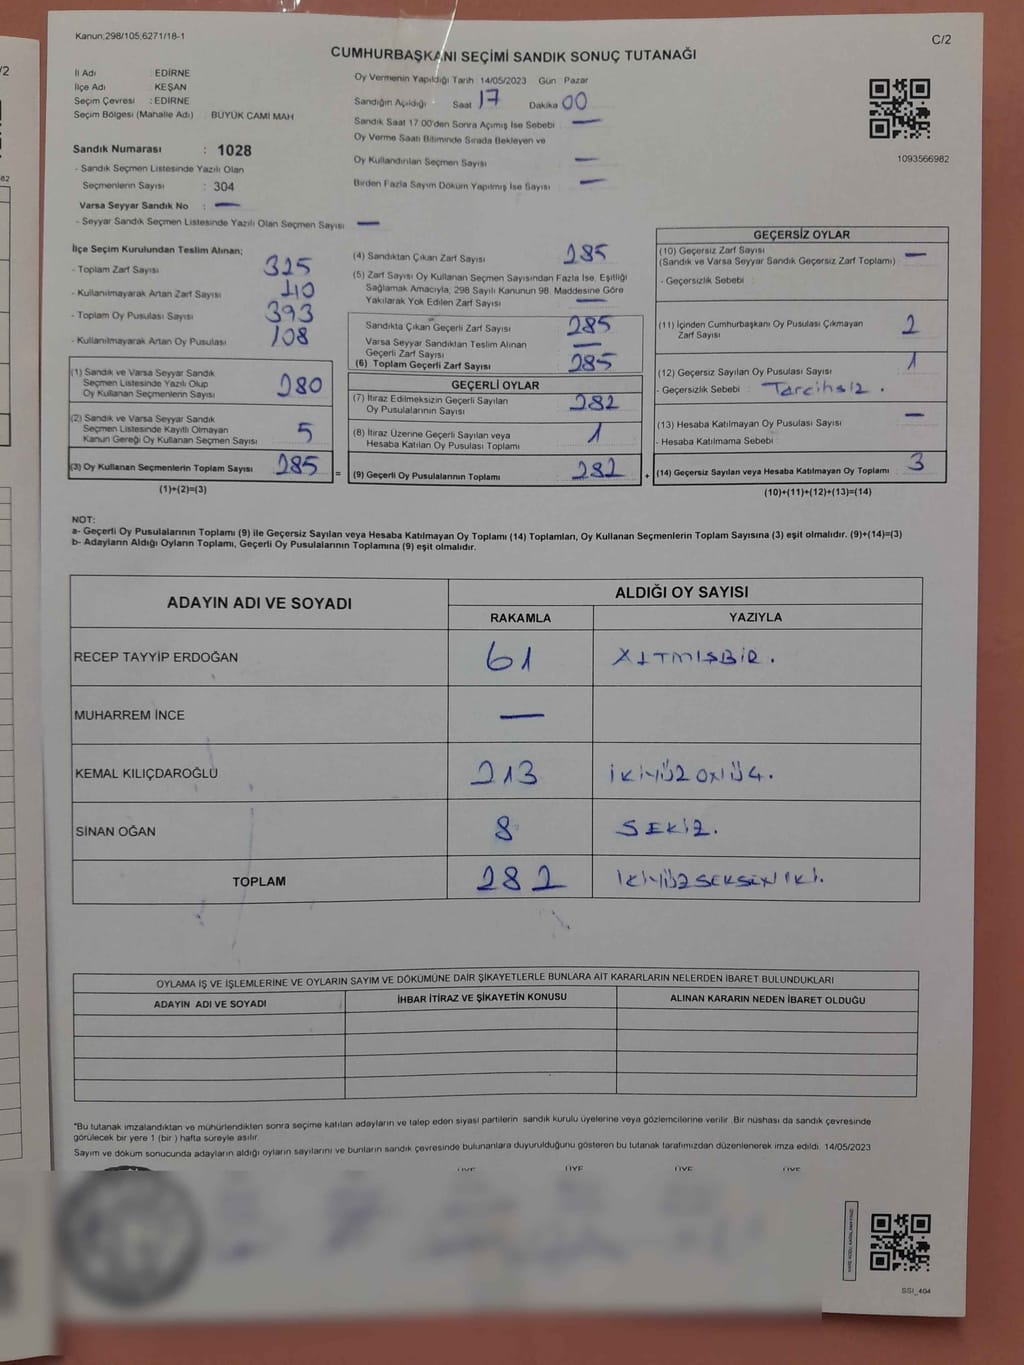 Kanun;298/105;6271/18-1
C/2
CUMHURBAŞKANI SEÇİMİ SANDIK SONUÇ TUTANAĞI
İl Adı : EDİRNE
İlçe Adı : KEŞAN
Seçim Çevresi : EDİRNE
Seçim Bölgesi (Mahalle Adı) : BÜYÜK CAMİ MAH
Sandık Numarası : 1028
- Sandık Seçmen Listesinde Yazılı Olan
Seçmenlerin Sayısı : 304
Varsa Seyyar Sandık No : —
- Seyyar Sandık Seçmen Listesinde Yazılı Olan Seçmen Sayısı : —
Oy Vermenin Yapıldığı Tarih : 14/05/2023 Gün : Pazar
Sandığın Açıldığı Saat 17 Dakika 00
Sandık Saat 17.00'den Sonra Açılmış İse Sebebi : —
Oy Verme Saati Bitiminde Sırada Bekleyen ve
Oy Kullandırılan Seçmen Sayısı : —
Birden Fazla Sayım Döküm Yapılmış İse Sayısı : —
1093566982
İlçe Seçim Kurulundan Teslim Alınan;
- Toplam Zarf Sayısı : 325
- Kullanılmayarak Artan Zarf Sayısı : 40
- Toplam Oy Pusulası Sayısı : 393
- Kullanılmayarak Artan Oy Pusulası : 108
(1) Sandık ve Varsa Seyyar Sandık
Seçmen Listesinde Yazılı Olup
Oy Kullanan Seçmenlerin Sayısı 280
(2) Sandık ve Varsa Seyyar Sandık
Seçmen Listesinde Kayıtlı Olmayan
Kanun Gereği Oy Kullanan Seçmen Sayısı 5
(3) Oy Kullanan Seçmenlerin Toplam Sayısı 285
(1)+(2)=(3)
=
(4) Sandıktan Çıkan Zarf Sayısı 285
(5) Zarf Sayısı Oy Kullanan Seçmen Sayısından Fazla İse, Eşitliği
Sağlamak Amacıyla, 298 Sayılı Kanunun 98. Maddesine Göre
Yakılarak Yok Edilen Zarf Sayısı —
Sandıkta Çıkan Geçerli Zarf Sayısı 285
Varsa Seyyar Sandıktan Teslim Alınan
Geçerli Zarf Sayısı —
(6) Toplam Geçerli Zarf Sayısı 285
GEÇERLİ OYLAR
(7) İtiraz Edilmeksizin Geçerli Sayılan
Oy Pusulalarının Sayısı 282
(8) İtiraz Üzerine Geçerli Sayılan veya
Hesaba Katılan Oy Pusulası Toplamı 1
(9) Geçerli Oy Pusulalarının Toplamı 282
+
GEÇERSİZ OYLAR
(10) Geçersiz Zarf Sayısı
(Sandık ve Varsa Seyyar Sandık Geçersiz Zarf Toplamı) —
- Geçersizlik Sebebi :
(11) İçinden Cumhurbaşkanı Oy Pusulası Çıkmayan
Zarf Sayısı 2
(12) Geçersiz Sayılan Oy Pusulası Sayısı 1
- Geçersizlik Sebebi : Tercihsiz.
(13) Hesaba Katılmayan Oy Pusulası Sayısı —
- Hesaba Katılmama Sebebi :
(14) Geçersiz Sayılan veya Hesaba Katılmayan Oy Toplamı 3
(10)+(11)+(12)+(13)=(14)
NOT:
a- Geçerli Oy Pusulalarının Toplamı (9) ile Geçersiz Sayılan veya Hesaba Katılmayan Oy Toplamı (14) Toplamları, Oy Kullanan Seçmenlerin Toplam Sayısına (3) eşit olmalıdır. (9)+(14)=(3)
b- Adayların Aldığı Oyların Toplamı, Geçerli Oy Pusulalarının Toplamına (9) eşit olmalıdır.
ADAYIN ADI VE SOYADI
ALDIĞI OY SAYISI
RAKAMLA YAZIYLA
RECEP TAYYİP ERDOĞAN 61 ALTMIŞBİR.
MUHARREM İNCE —
KEMAL KILIÇDAROĞLU 213 İKİYÜZONÜÇ.
SİNAN OĞAN 8 SEKİZ.
TOPLAM 282 İKİYÜZSEKSENİKİ.
OYLAMA İŞ VE İŞLEMLERİNE VE OYLARIN SAYIM VE DÖKÜMÜNE DAİR ŞİKAYETLERLE BUNLARA AİT KARARLARIN NELERDEN İBARET BULUNDUKLARI
ADAYIN ADI VE SOYADI İHBAR İTİRAZ VE ŞİKAYETİN KONUSU ALINAN KARARIN NEDEN İBARET OLDUĞU
*Bu tutanak imzalandıktan ve mühürlendikten sonra seçime katılan adayların ve talep eden siyasi partilerin sandık kurulu üyelerine veya gözlemcilerine verilir. Bir nüshası da sandık çevresinde
görülecek bir yere 1 (bir) hafta süreyle asılır.
Sayım ve döküm sonucunda adayların aldığı oyların sayılarını ve bunların sandık çevresinde bulunanlara duyurulduğunu gösteren bu tutanak tarafımızdan düzenlenerek imza edildi. 14/05/2023
ÜYE ÜYE ÜYE ÜYE
SSI_404